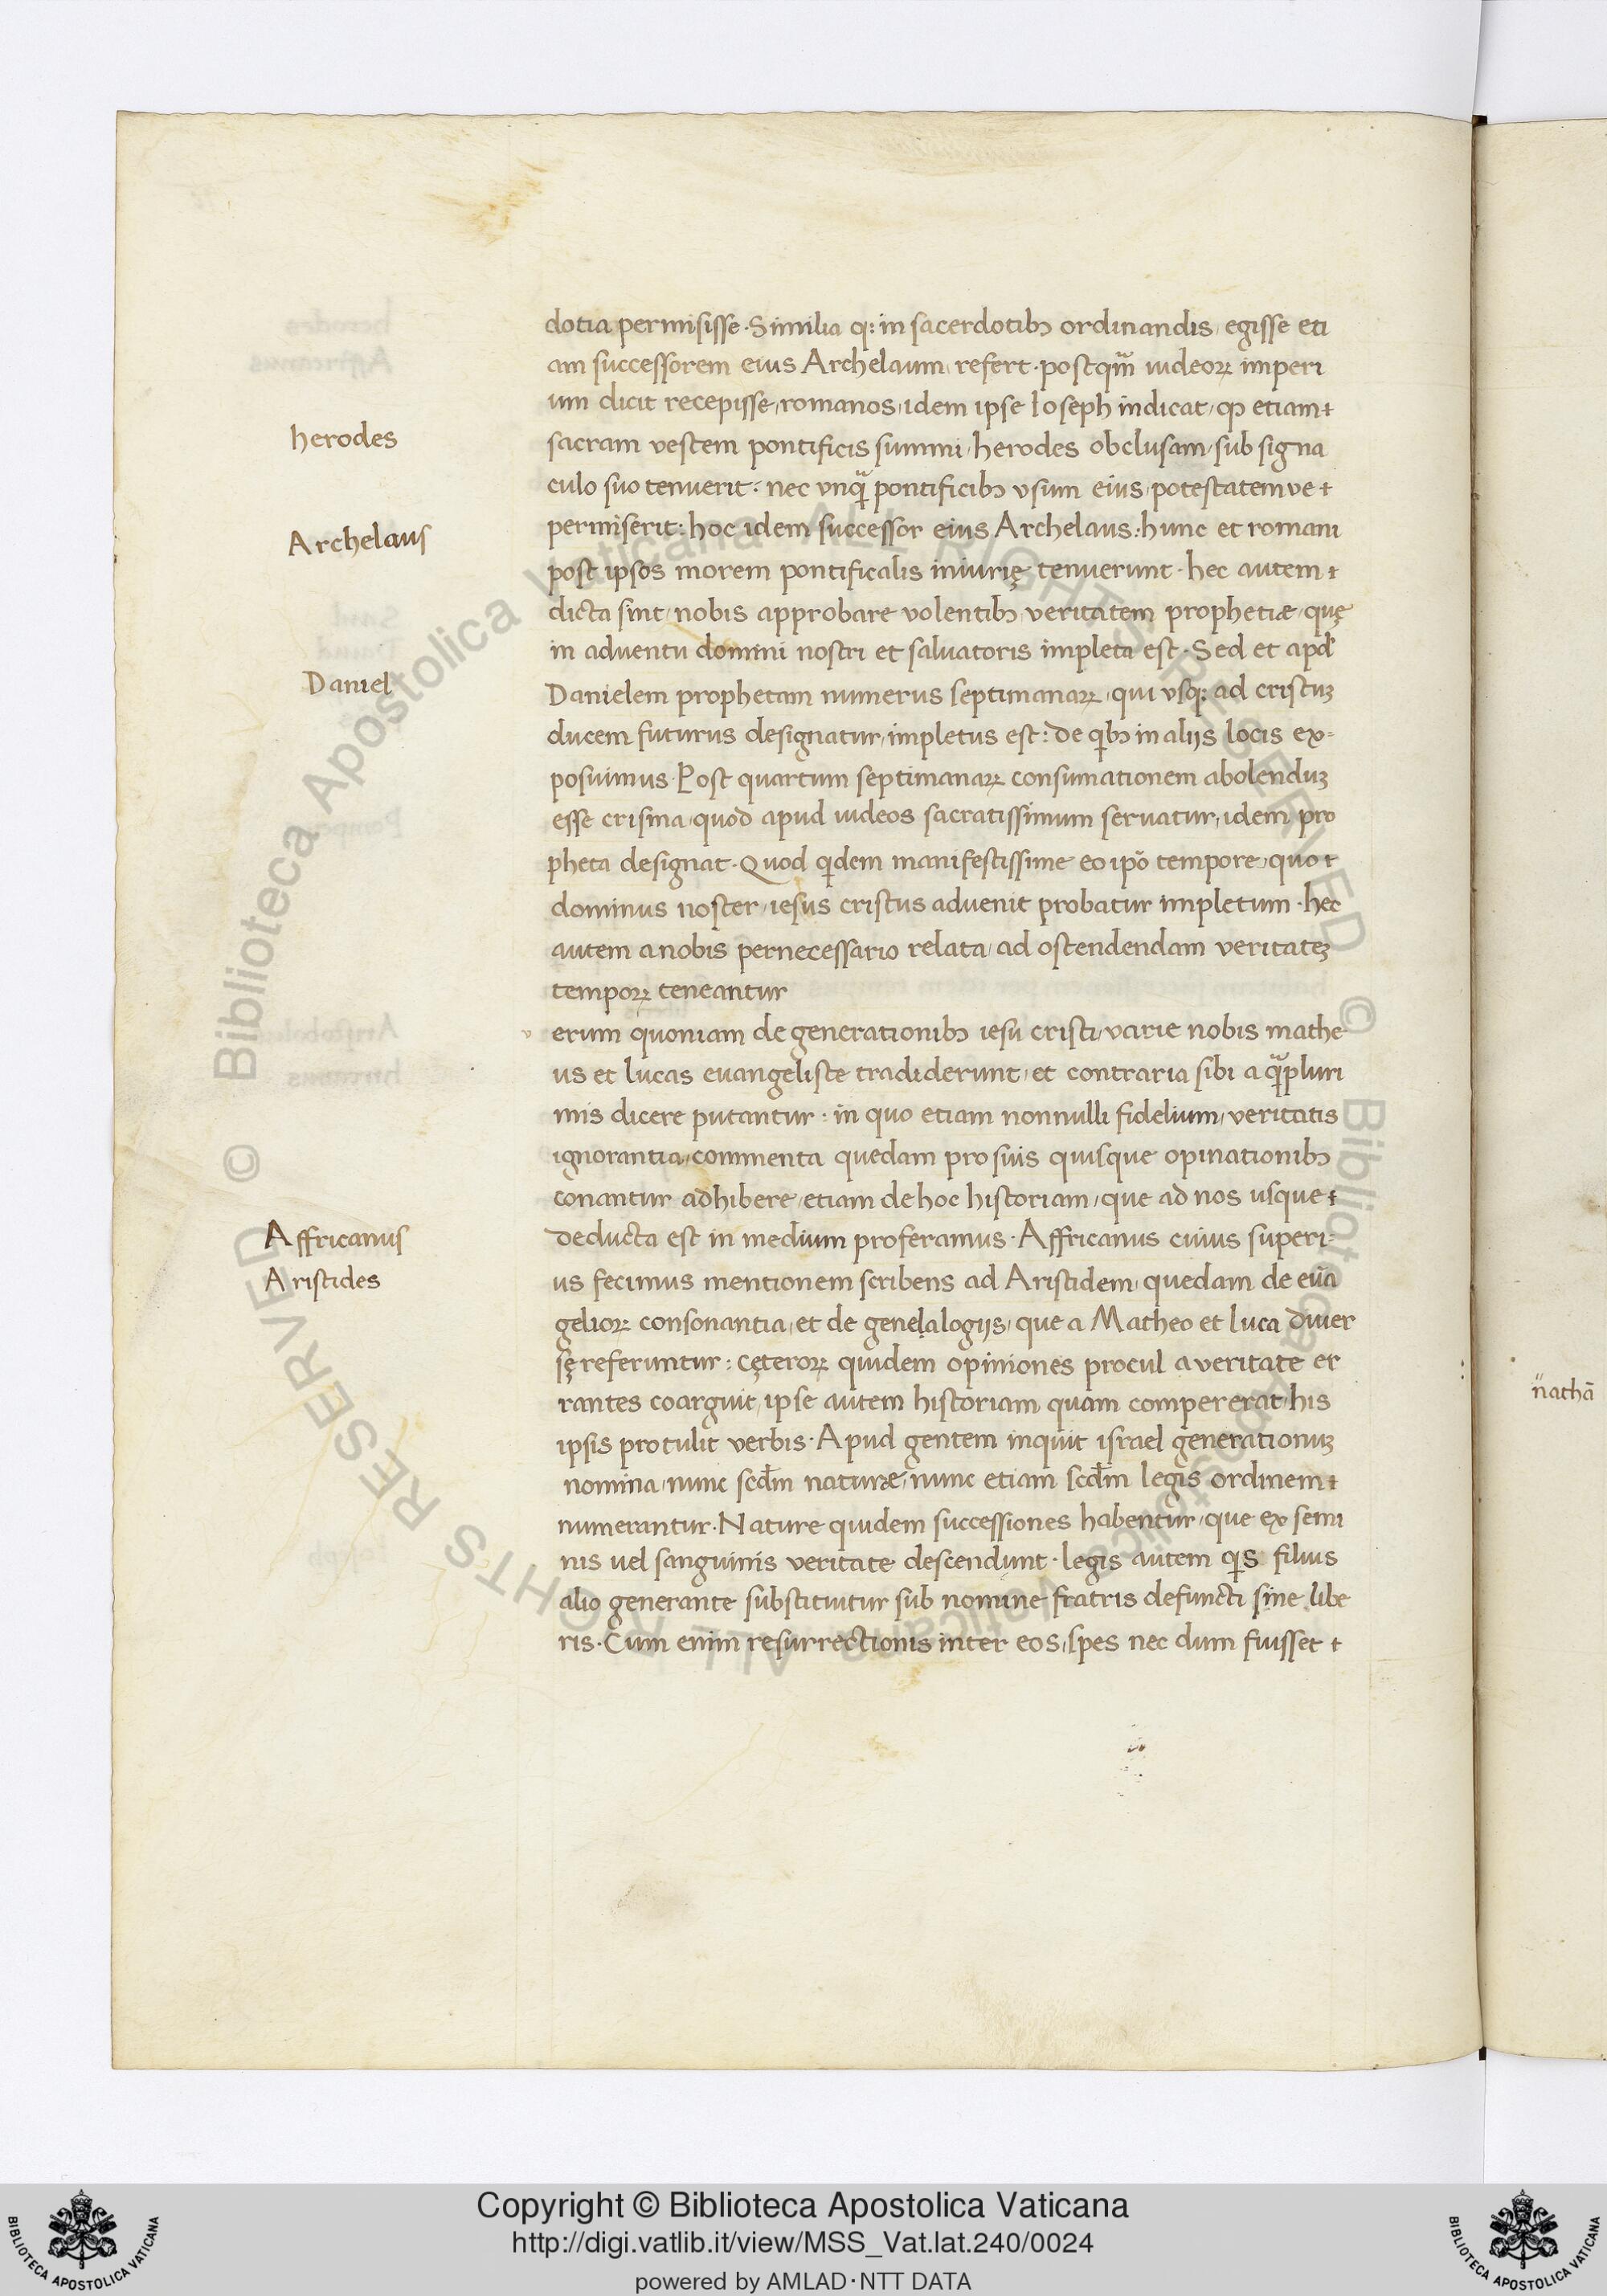 dotia permisisse · Similia q: in sacerdotibꝫ ordinandis, egisse eti
am successorem eius Archelaum, refert · postqm̃ iudeoꝝ imperi
um dicit recepisse, romanos, idem ipse Ioseph indicat, ꝙ etiam
herodes
sacram vestem pontificis summi, herodes obclusam, sub signa
culo suo tenuerit : nec vnq̃ pontificibꝫ vsum eius, potestatem ve
Archelaus
permiserit : hoc idem successor eius Archelaus : hunc et romani
post ipsos morem pontificalis iniurię tenuerunt · hec autem
dicta sint, nobis approbare volentibꝫ, veritatem prophetiæ, quę
in aduentu domini nostri et saluatoris impleta est · Sed et apd̛
Daniel
Danielem prophetam numerus septimanaꝝ, qui vsq: ad cristuꝫ
ducem futurus designatur, impletus est : de qibꝫ in aliȷs locis ex=
posuimus · Post quartum septimanaꝝ consumationem abolenduꝫ
esse crisma, quod apud iudeos sacratissimum seruatur, idem pro
pheta designat · Quod qidem manifestissime eo ip̃o tempore, quo
dominus noster, iesus cristus aduenit probatur impletum · hec
autem a nobis pernecessario relata, ad ostendendam veritateꝫ
tempoꝝ teneantur
v erum quoniam de generationibꝫ iesu cristi, varie nobis mathe
us et lucas euangeliste tradiderunt, et contraria sibi a q̃pluri
mis dicere putantur : in quo etiam nonnulli fidelium, veritatis
ignorantia, commenta quedam pro suis quisque opinationibꝫ
conantur adhibere, etiam de hoc historiam, que ad nos usque
Affricanus
deducta est in medium proferamus · Affricanus cuius superi=
Aristides
us fecimus mentionem scribens ad Aristidem, quedam de euã
gelioꝝ consonantia, et de genelalogiȷs, que a Matheo et luca diuer
sę referuntur : cęteroꝝ quidem opiniones procul a veritate er
rantes coarguit, ipse autem historiam quam compererat, his
ipsis protulit verbis · Apud gentem inquit israel generationuꝫ
nomina, nunc scd̃m naturæ, nunc etiam scd̃m legis ordinem
numerantur · Nature quidem successiones habentur, que ex semi
nis uel sanguinis veritate descendunt · legis autem qis filius
alio generante substituitur sub nomine fratris defuncti sine libe
ris · Cum enim resurrectionis inter eos, spes nec dum fuisset
nathã
Copyright © Biblioteca Apostolica Vaticana
http://digi.vatlib.it/view/MSS_Vat.lat.240/0024
powered by AMLAD·NTT DATA
BIBLIOTECA APOSTOLICA VATICANA
BIBLIOTECA APOSTOLICA VATICANA
© Biblioteca Apostolica Vaticana ALL RIGHTS RESERVED
© Biblioteca Apostolica Vaticana ALL RIGHTS RESERVED